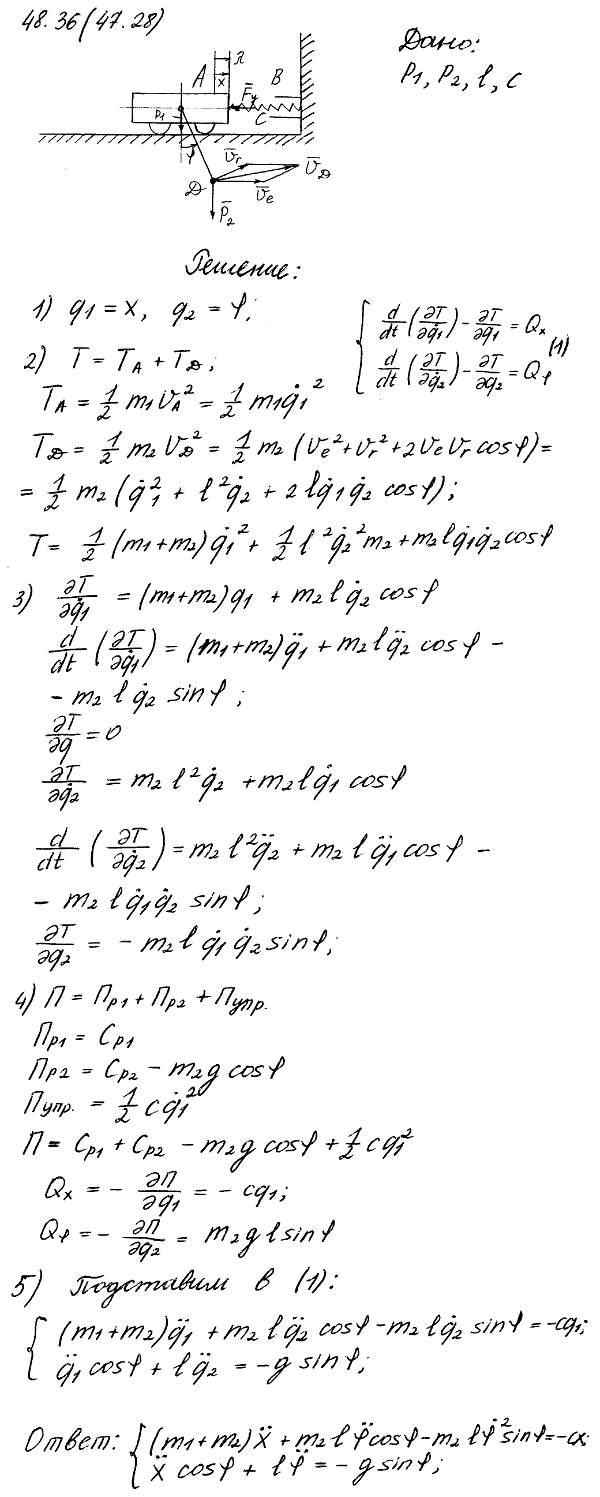 48.36(47.28)
Дано:
P1, P2, l, c
λ
x
A
B
F̄y
C
P1
φ
V̄r
V̄D
D
V̄e
P̄2
Решение:
1) q1 = x, q2 = φ;
{ d/dt(∂T/∂q̇1) − ∂T/∂q1 = Qx
d/dt(∂T/∂q̇2) − ∂T/∂q2 = Qφ (1)
2) T = TA + TD;
TA = 1/2 m1 VA² = 1/2 m1q̇1²
TD = 1/2 m2 VD² = 1/2 m2 (Ve² + Vr² + 2VeVr cosφ) =
= 1/2 m2 (q̇1² + l²q̇2 + 2lq̇1q̇2 cosφ);
T = 1/2 (m1+m2)q̇1² + 1/2 l²q̇2²m2 + m2lq̇1q̇2cosφ
3) ∂T/∂q̇1 = (m1+m2)q1 + m2lq̇2cosφ
d/dt(∂T/∂q̇1) = (m1+m2)q̈1 + m2lq̈2 cosφ −
− m2 l q̇2 sinφ;
∂T/∂q = 0
∂T/∂q̇2 = m2 l²q̇2 + m2lq̇1 cosφ
d/dt (∂T/∂q̇2) = m2 l²q̈2 + m2 l q̈1 cosφ −
− m2 l q̇1q̇2 sinφ;
∂T/∂q2 = − m2 l q̇1 q̇2 sinφ;
4) П = Пр1 + Пр2 + Пупр.
Пр1 = Cр1
Пр2 = Cр2 − m2g cosφ
Пупр. = 1/2 cq̇1²
П = Cр1 + Cр2 − m2g cosφ + 1/2 cq1²
Qx = − ∂П/∂q1 = − cq1;
Qφ = − ∂П/∂q2 = m2g l sinφ
5) Подставим в (1):
{ (m1+m2)q̈1 + m2 l q̈2 cosφ − m2 l q̇2 sinφ = −cq1;
q̈1 cosφ + l q̈2 = −g sinφ;
Ответ: { (m1+m2)ẍ + m2 l φ̈ cosφ − m2 l φ̇² sinφ = −cx
ẍ cosφ + l φ̈ = − g sinφ;